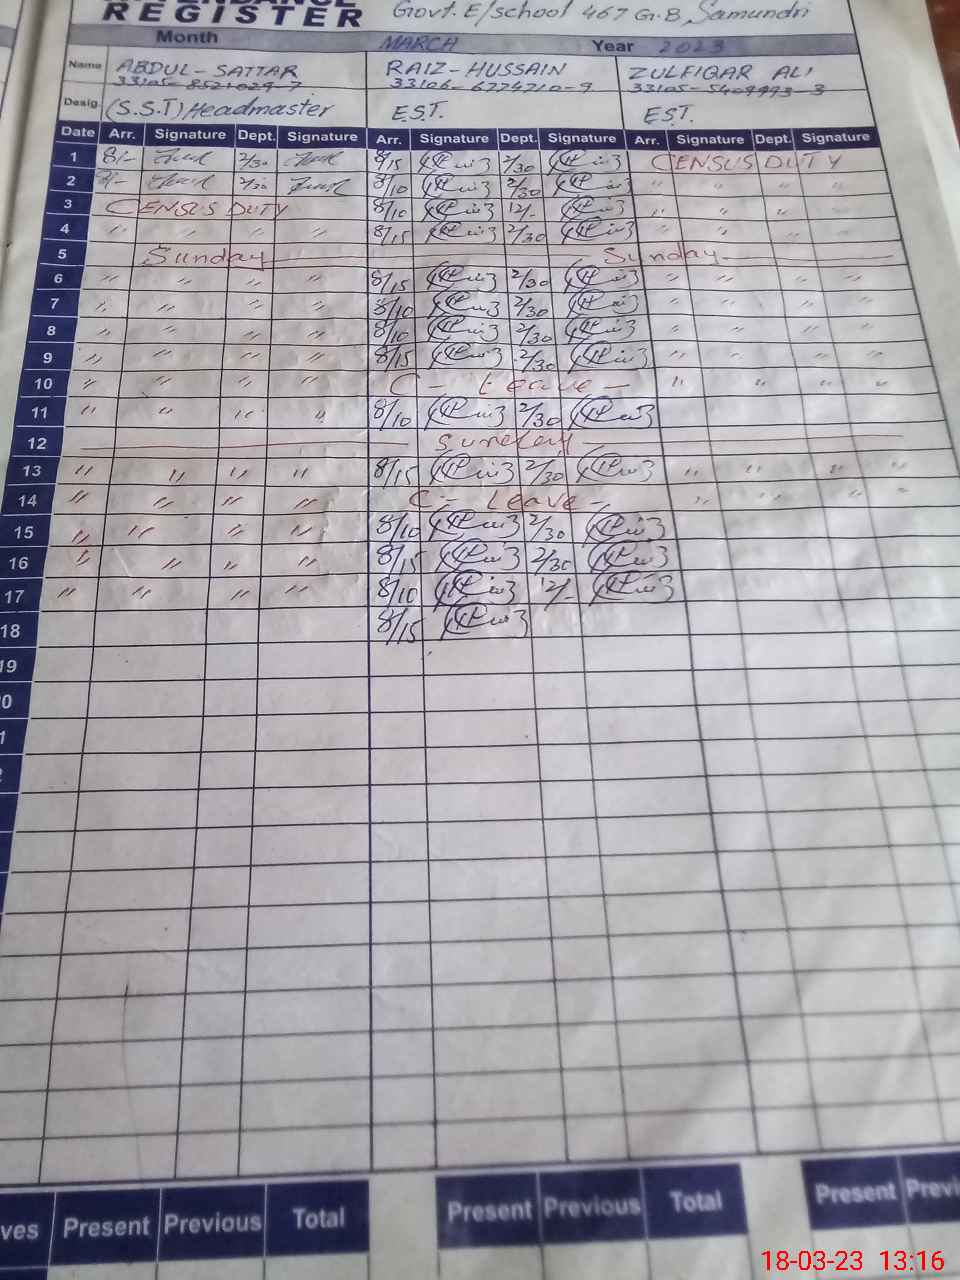 ATTENDANCE
REGISTER Govt. E/school 467 G.B Samundri
Month MARCH Year 2023
Name ABDUL-SATTAR RAIZ-HUSSAIN ZULFIQAR ALI
33105-8521029-7 33106-6274710-9 33105-5409993-3
Desig. (S.S.T) Headmaster E.S.T. E.S.T.
Date Arr. Signature Dept. Signature Arr. Signature Dept. Signature Arr. Signature Dept. Signature
1 8/- 2/30 8/15 2/30 CENSUS DUTY
2 8/- 2/30 8/10 2/30 " " " "
3 CENSUS DUTY 8/10 12/- " " " "
4 " " " " 8/15 2/30 " " " "
5 Sunday Sunday
6 " " " " 8/15 2/30 " " " "
7 " " " " 8/10 2/30 " " " "
8 " " " " 8/10 2/30 " " " "
9 " " " " 8/15 2/30 " " " "
10 " " " " C - Leave - " " " "
11 " " " " 8/10 2/30
12 Sunday
13 " " " " 8/15 2/30 " " " "
14 " " " " C - Leave - " " " "
15 " " " " 8/10 2/30
16 " " " " 8/15 2/30
17 " " " " 8/10 12/-
18 8/15
19
0
1
2
ves Present Previous Total Present Previous Total Present Previ
18-03-23 13:16